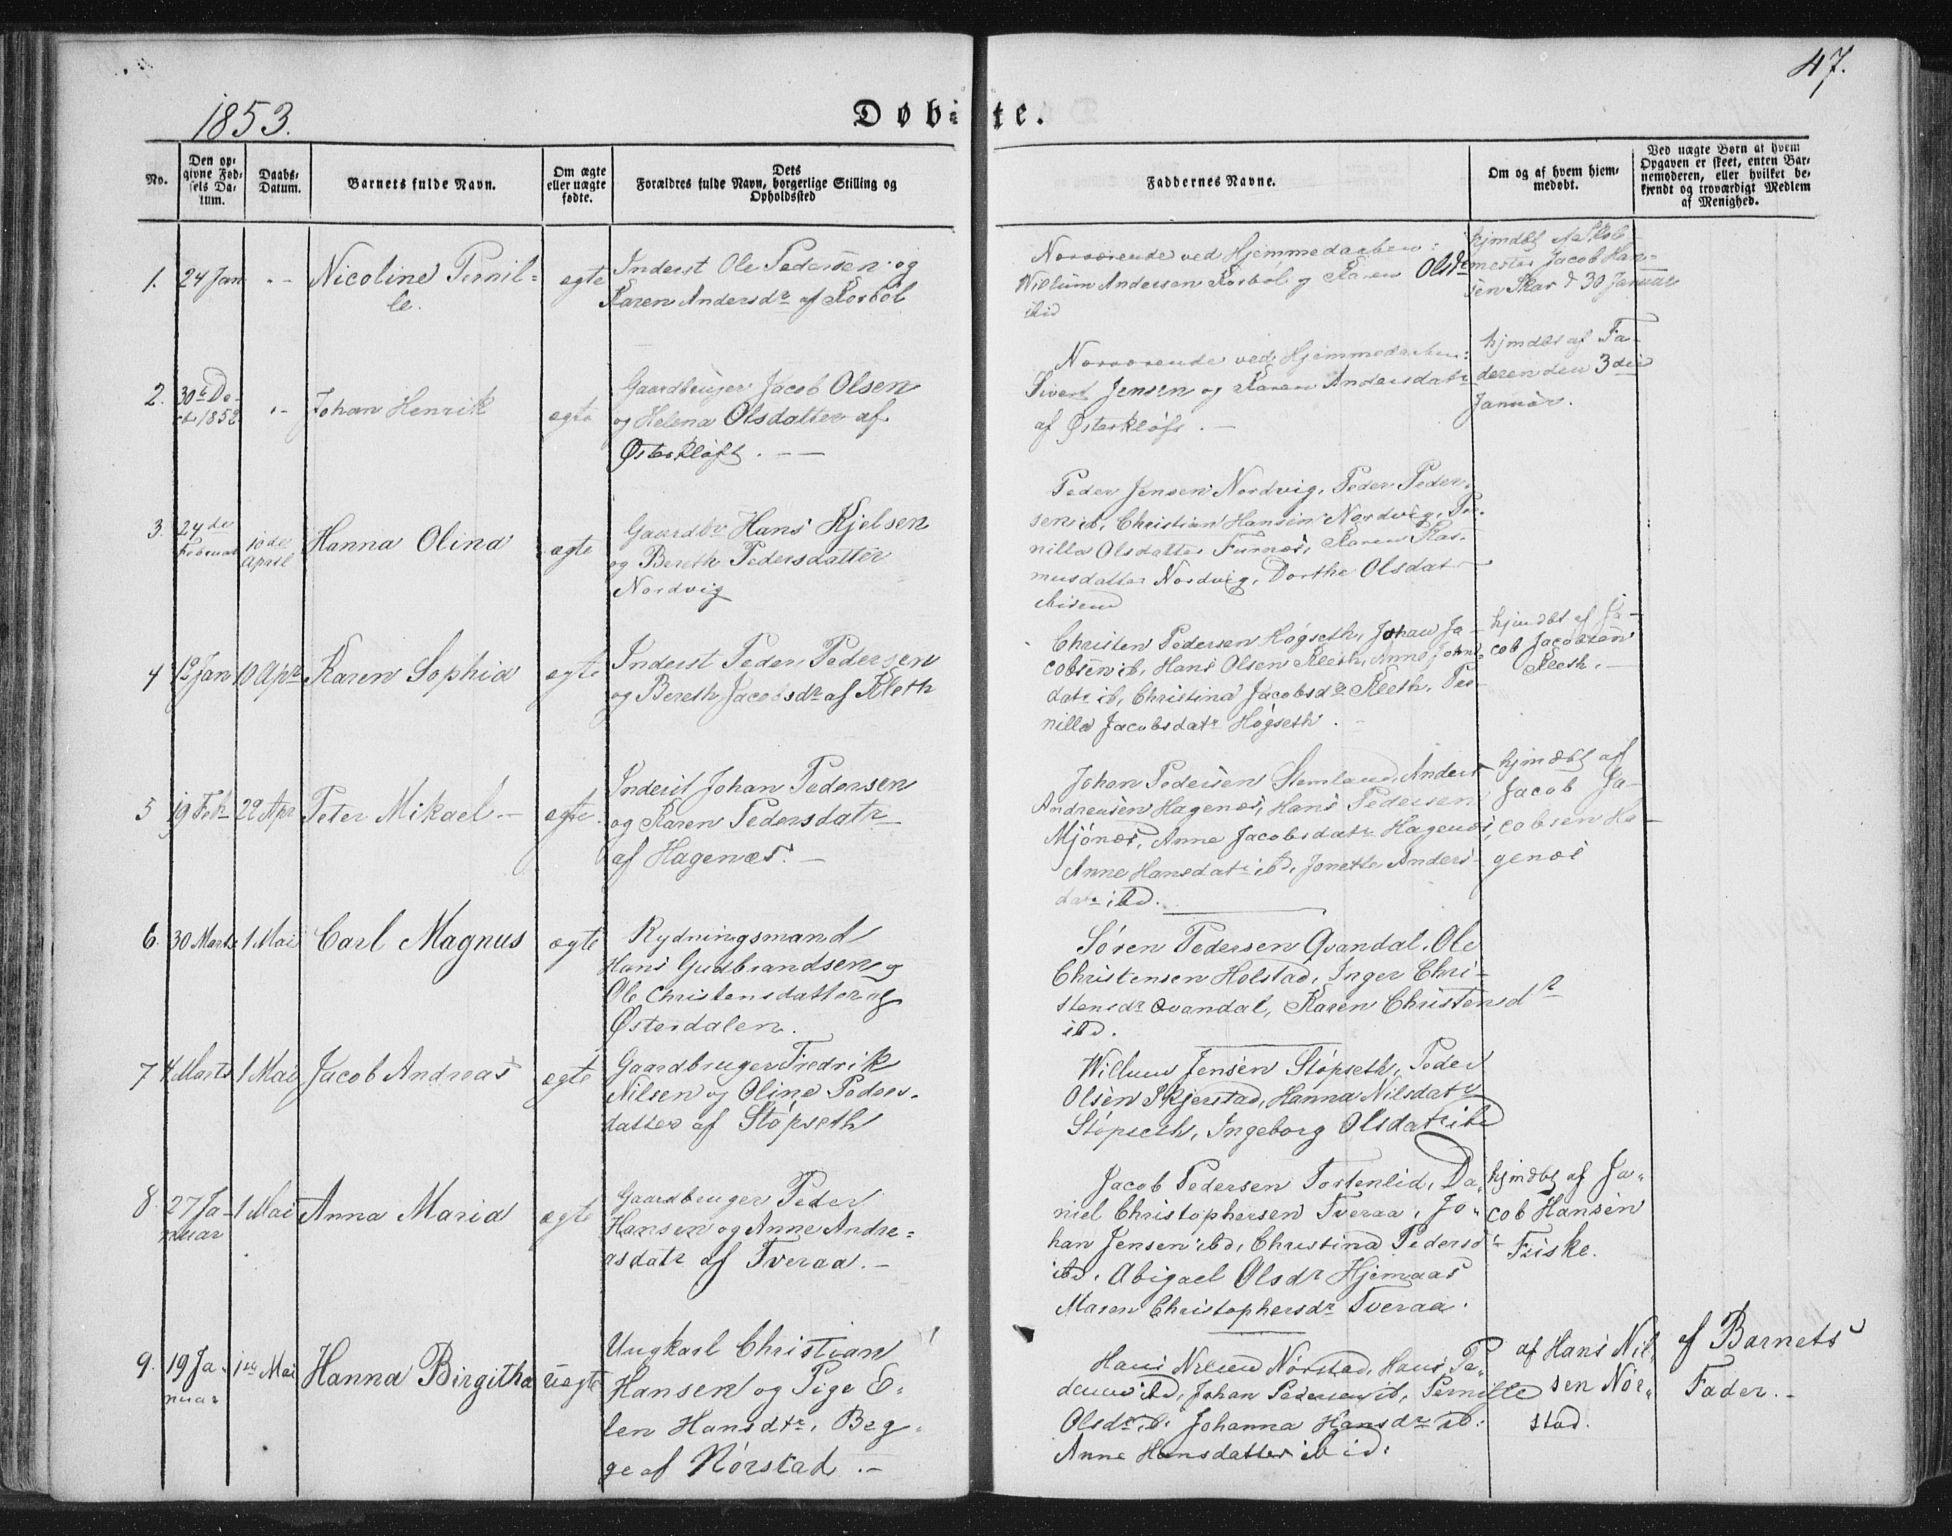 47.
1853.
Døbte.
No.
Den op-
givne Fød-
sels Da-
tum.
Daabs-
Datum.
Barnets fulde Navn.
Om ægte
eller uægte
fødte.
Dets
Forældres fulde Navn, borgerlige Stilling og
Opholdssted
Faddernes Navne.
Om og af hvem hjem-
medøbt.
Ved uægte Børn at hvem
Opgaven er skeet, enten Bar-
nemoderen, eller hvilket be-
kjendt og troværdigt Medlem
af Menighed.
1.
24 Jan
"-
Nicoline Pernil-
le.
egte
Inderst Ole Pedersen og
Karen Andersdr af Kosbøl
Nærværende ved Hjemmedaaben:
Willum Andersen Kosbøl og Karen Olsdr
ibid
hjmdbt af Skol-
mester Jacob Han-
sen Skar d 30 Januar
2.
30te De-
cb 1852
"-
Johan Henrik
egte
Gaardbruger Jacob Olsen
og Helena Olsdatter af
Østerkløft. —
Nærværende ved Hjemmedaaben:
Sivert Jensen og Karen Andersdatr
af Østerkløft. —
hjmdbt af Fa-
deren den 3die
Januar.
3.
24de
Februar
10de
April
Hanna Olina
egte
Gaardbr Hans Kjelsen
og Bereth Pedersdatter
Nordvig
Peder Jensen Nordvig, Peder Peder-
sen ib, Christian Hansen Nordvig, Per-
nilla Olsdatter Furnæs, Karen Ras-
musdatter Nordvig, Dorthe Olsdatr
ibidem
4
12 Jan
10 Apr
Karen Sophia
egte
Inderst Peder Pedersen
og Bereth Jacobsdr af Kleth
Christen Pedersen Høgseth, Johan Ja-
cobsen ib, Hans Olsen Kleth, Anne Johns
datr ib, Christina Jacobsdr Kleth, Per-
nilla Jacobsdatr Høgseth. -
hjmdbt af Ja-
cob Jacobsen
Kleth. —
5
19 Feb
22 Apr
Peter Mikael. —
egte.
Inderst Johan Pedersen
og Karen Pedersdatr
af Hagenæs. —
Johan Pedersen Stemland, Anders
Andreasen Hagenæs, Hans Pedersen
Mjønæs, Anne Jacobsdatr Hagenæs,
Anne Hansdatr ibd, Jonette Anders-
datr ibd.
hjmdbt af
Jacob Ja-
cobsen Ha-
genæs
6.
30 Marts
1 Mai
Carl Magnus
egte
Rydningsmand
Hans Gudbrandsen og
Ole Christensdatter af
Østerdalen.
Søren Pedersen Qvandal, Ole
Christensen Holstad, Inger Chri-
stensdr Qvandal, Karen Christensdr
ibd.
7
4 Marts
1 Mai
Jacob Andreas
egte
Gaardbruger Fredrik
Nilsen og Oline Peders-
datter af Støpseth
Willum Jensen Støpseth, Peder
Olsen Skjerstad, Hanna Nilsdatr
Støpseth, Ingeborg Olsdatr ibd
8.
27 Ja-
nuar
1 Mai
Anna Maria
egte
Gaardbruger Peder
Hansen og Anne Andre-
asdatr af Tveraa. —
Jacob Pedersen Tortenlid, Da-
niel Christophersen Tveraa, Jo-
han Jensen ibd, Christina Pedersdr
ibd. Abigael Olsdr Hjemaas
Maren Christophersdr Tveraa.
hjmdbt af Ja-
cob Hansen
Friske.
9.
19 Ja-
nuar
1ste Mai
Hanna Birgitha
uegte
Ungkarl Christian
Hansen og Pige E-
len Hansdtr. Beg-
ge af Nørstad. —
Hans Nilsen Nørstad, Hans Pe-
dersen ibd, Johan Pedersen ib, Pernille
Olsdr ib. Johanna Hansdr ib:
Anne Hansdatter ibid:
af Hans Nil-
sen Nør-
stad.
af Barnets
Fader. -